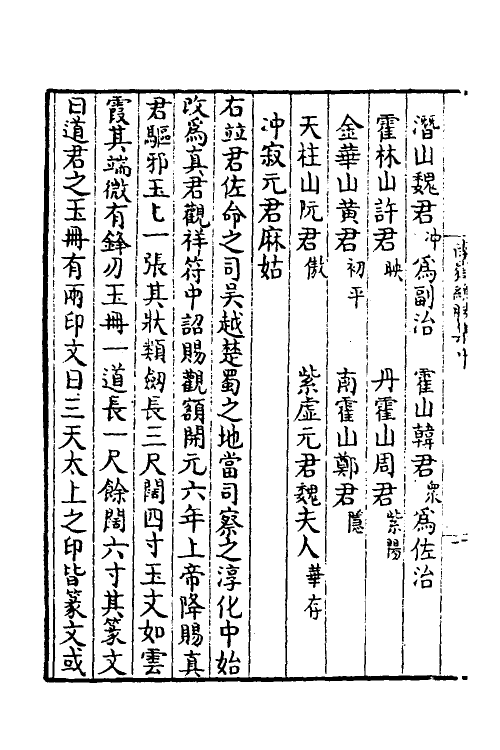 潛山魏君冲為副治　霍山韓君衆為佐治
霍林山許君映　丹霍山周君紫陽
金華山黃君初平　南霍山鄭君隱
天柱山阮君倣　紫虛元君魏夫人華存
冲寂元君麻姑
右竝君佐命之司吳越楚蜀之地當司察之淳化中始
改為真君觀祥符中詔賜觀額開元六年上帝降賜真
君驅邪玉匕一張其狀類劒長三尺闊四寸玉文如雲
霞其端微有鋒刃玉冊一道長一尺餘闊六寸其篆文
曰道君之玉冊有兩印文曰三天太上之印皆篆文或